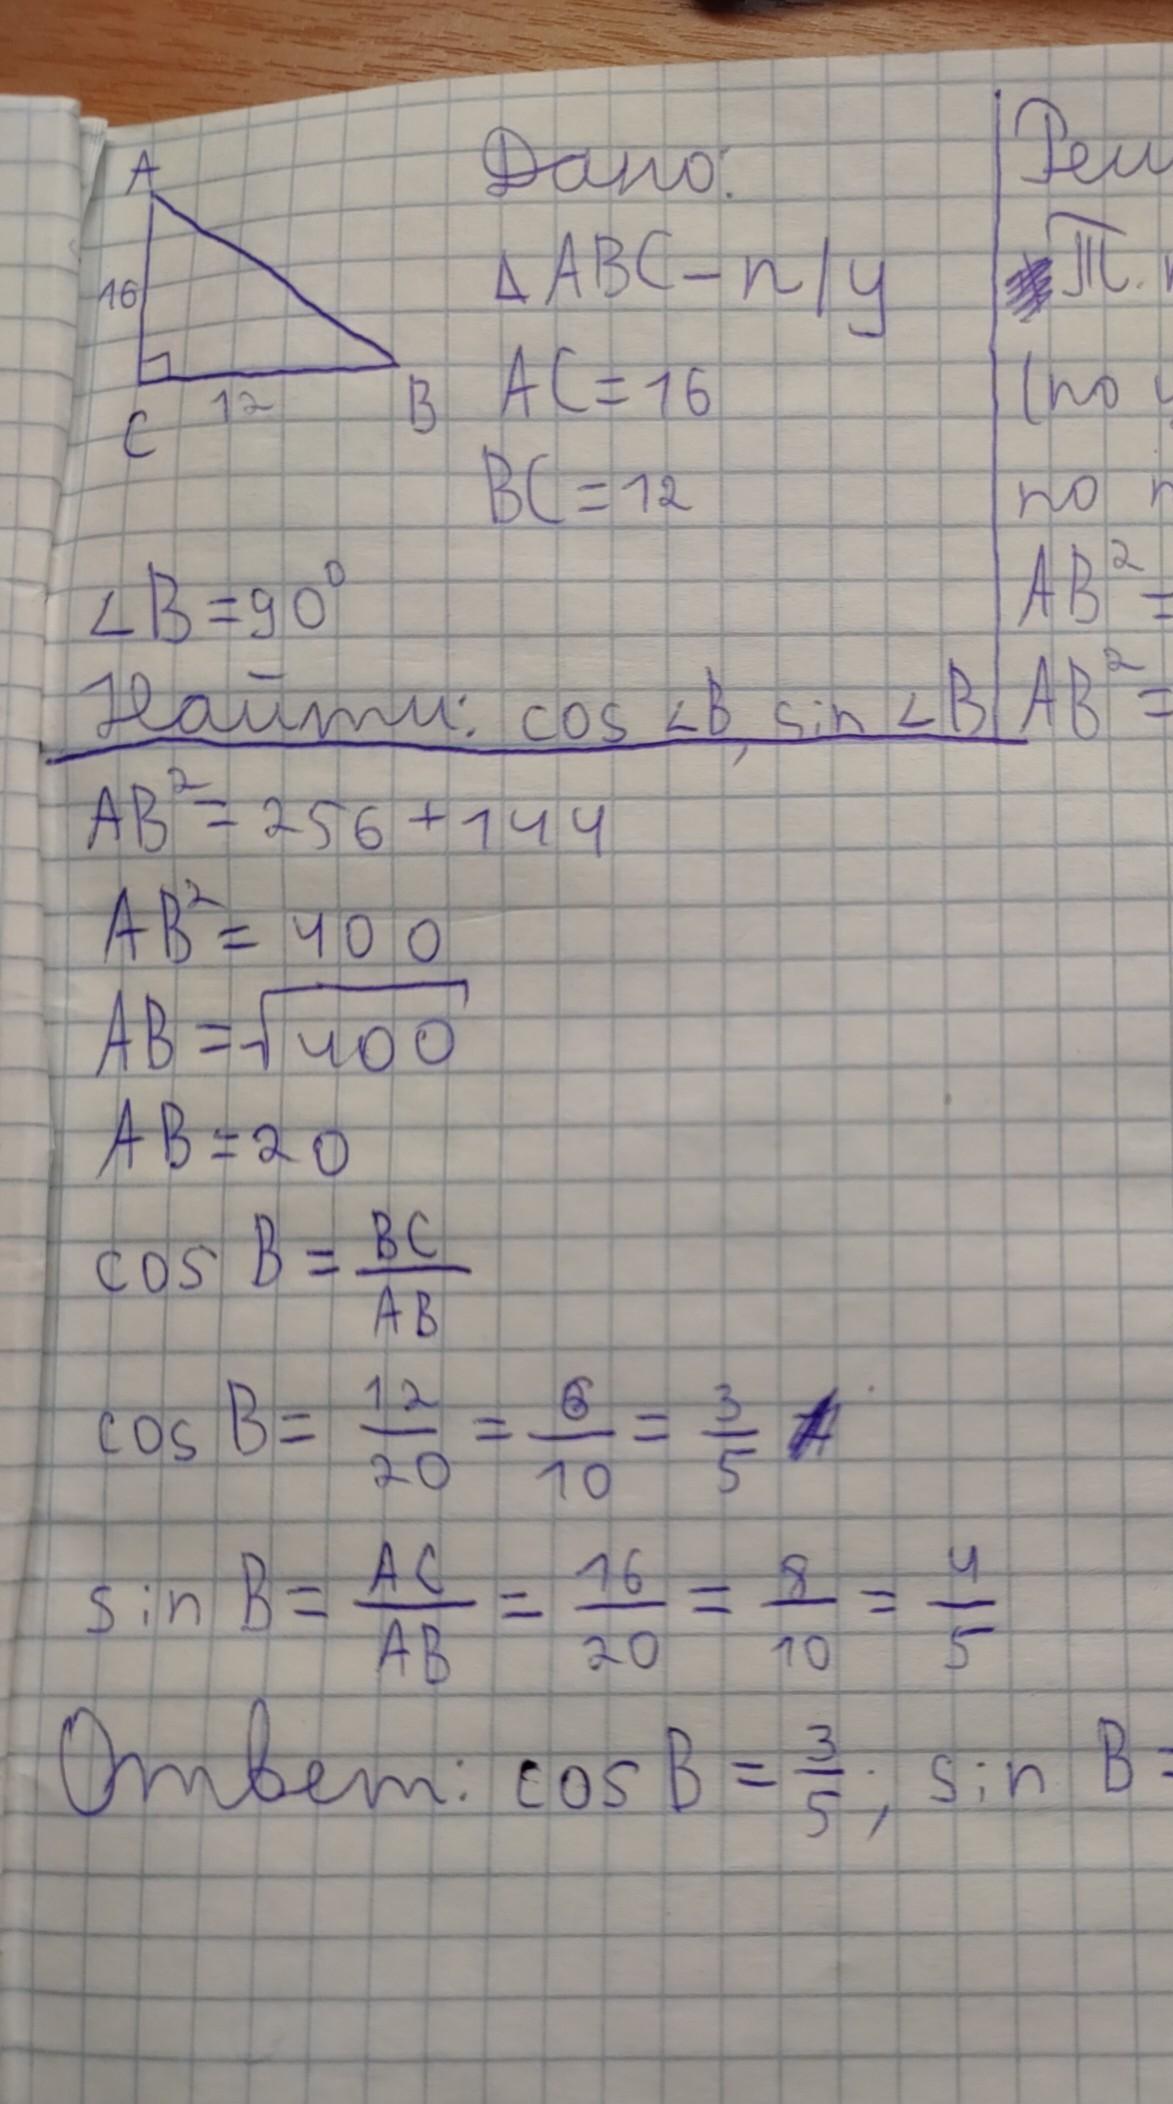 A
16
C
12
B
Дано:
△ABC – п/у
AC = 16
BC = 12
∠B = 90⁰
Найти: cos ∠B, sin ∠B
(по
по
AB² =
AB² =
AB² = 256 + 144
AB² = 400
AB = √400
AB = 20
cos B = BC/AB
cos B = 12/20 = 6/10 = 3/5
sin B = AC/AB = 16/20 = 8/10 = 4/5
Ответ: cos B = 3/5; sin B =